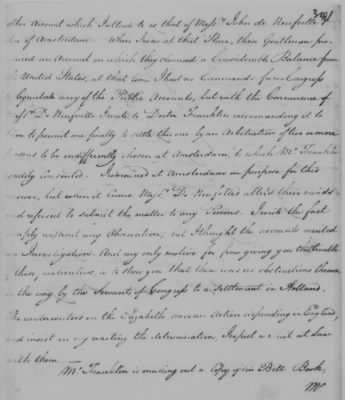 341
other Account which I allude to is that of Mess.rs John de Neufville
Son of Amsterdam. When I was at that Place, those Gentlemen pro
duced an Account on which they demand a Considerable Balance from
the United States, at that time I had no Commands from Congress
liquidate any of the Public Accounts, but with the Concurrence of
Mess.rs De Neufville I wrote to Doctor Franklin recommending it to
him to permit me finally to settle this one by an Arbitration of two or more
Persons to be indifferently chosen at Amsterdam, to which Mr. Franklin
readily Consented. I remained at Amsterdam on purpose for this
, but when it Came Mess.rs De Neufvilles alter'd their minds
and refused to submit the matter to any Persons. I write the fact
simply without any Observation, but I thought the accounts merited
an Investigation. And my only motive for giving you the trouble
these particulars is to shew you that there was no obstructions thrown
in the way by the Servants of Congress to a settlement in Holland.
The underwriters on the Elizabeth have an Action depending in England,
and insist on my waiting the determination, I expect a suit at Law
with them.
Mr. Franklin is making out a Copy of his Bill Book,
Mr